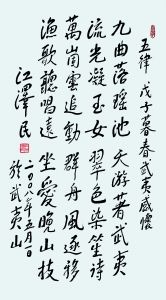 五律 戊子暮春武夷感懷
九曲落瑶池 天游著武夷
流光凝玉女 翠色染笙詩
萬崗雲追動 群舟風逐移
漁歌聽唱遠 坐愛晚山枝
江澤民
二〇〇八年 月一日
於武夷山